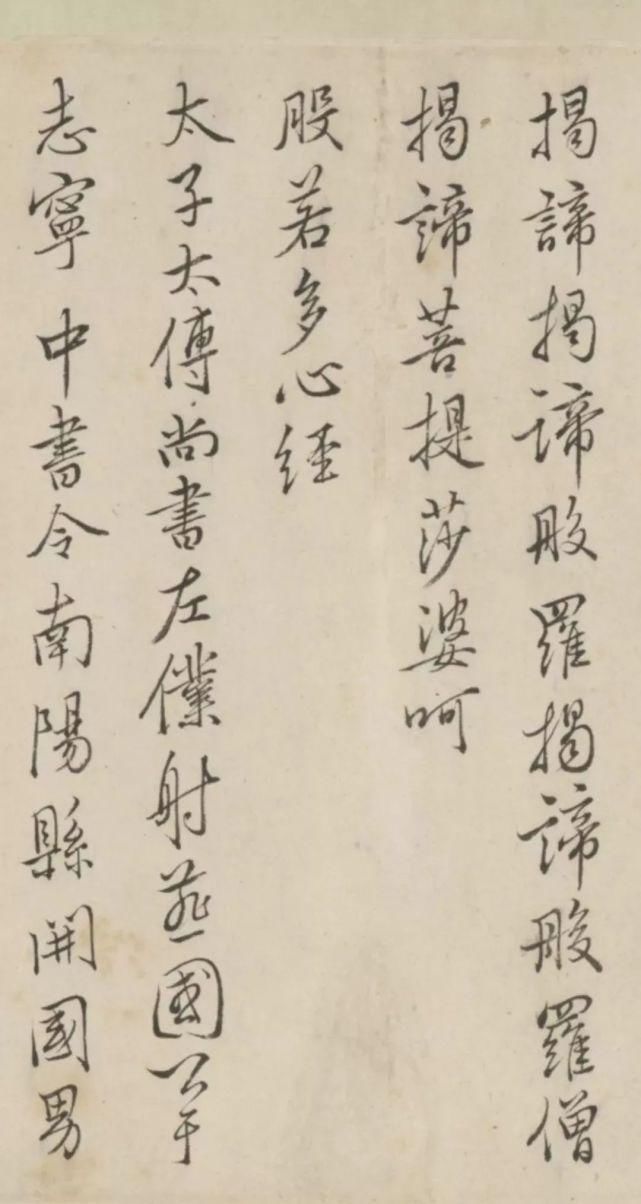 揭諦揭諦般羅揭諦般羅僧
揭諦菩提莎婆呵
般若多心經
太子太傅尚書左僕射燕國公于
志寧中書令南陽縣開國男